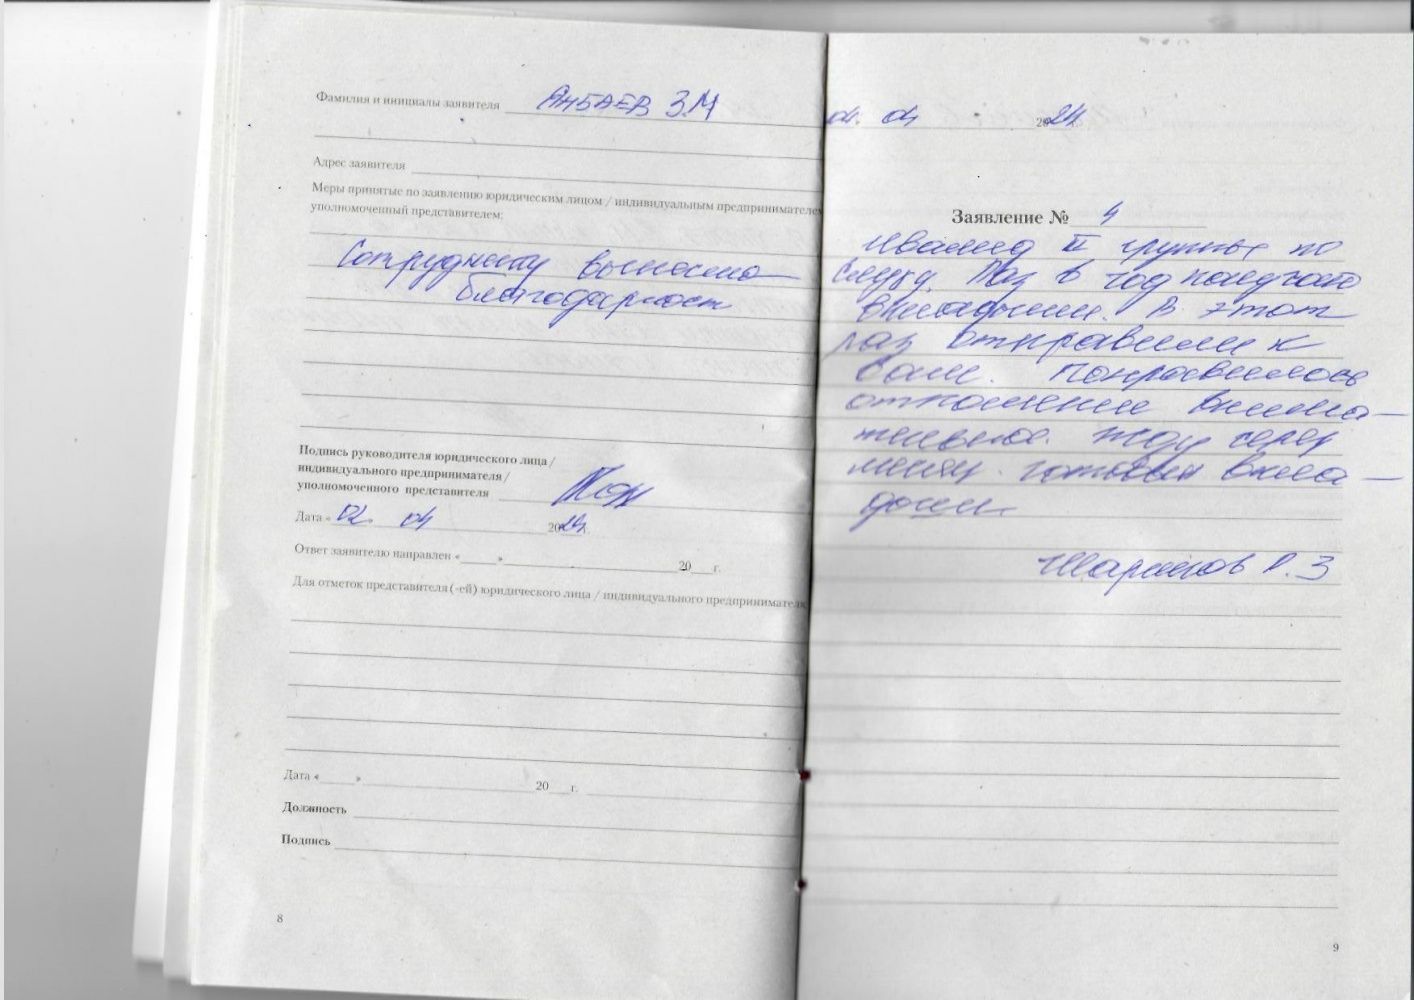 Фамилия и инициалы заявителя Янбаев З.М
Адрес заявителя
Меры принятые по заявлению юридическим лицом / индивидуальным предпринимателем
уполномоченный представителем:
Сотруднику вынесена
благодарност
Подпись руководителя юридического лица /
индивидуального предпринимателя /
уполномоченного представителя
Дата « 02. 04 2024г.
Ответ заявителю направлен « » 20 г.
Для отметок представителя (-ей) юридического лица / индивидуального предпринимателя
Дата « » 20 г.
Должность
Подпись
8
04. 04 2024
Заявление № 4
Инвалид II группы по
слуху. Раз в год получаю
вкладыши. В этот
раз отправили к
вам. Понравилось
отношение внима-
тельное. Жду через
месяц готовый вкла-
дыш.
Шарипов Р.З
9